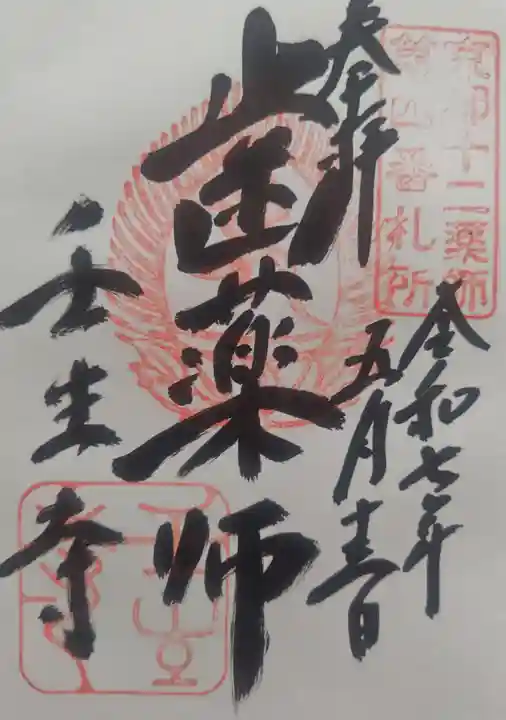 京都十二薬師
第四番札所
奉拝
令和七年
五月吉日
歯薬師
壬生寺